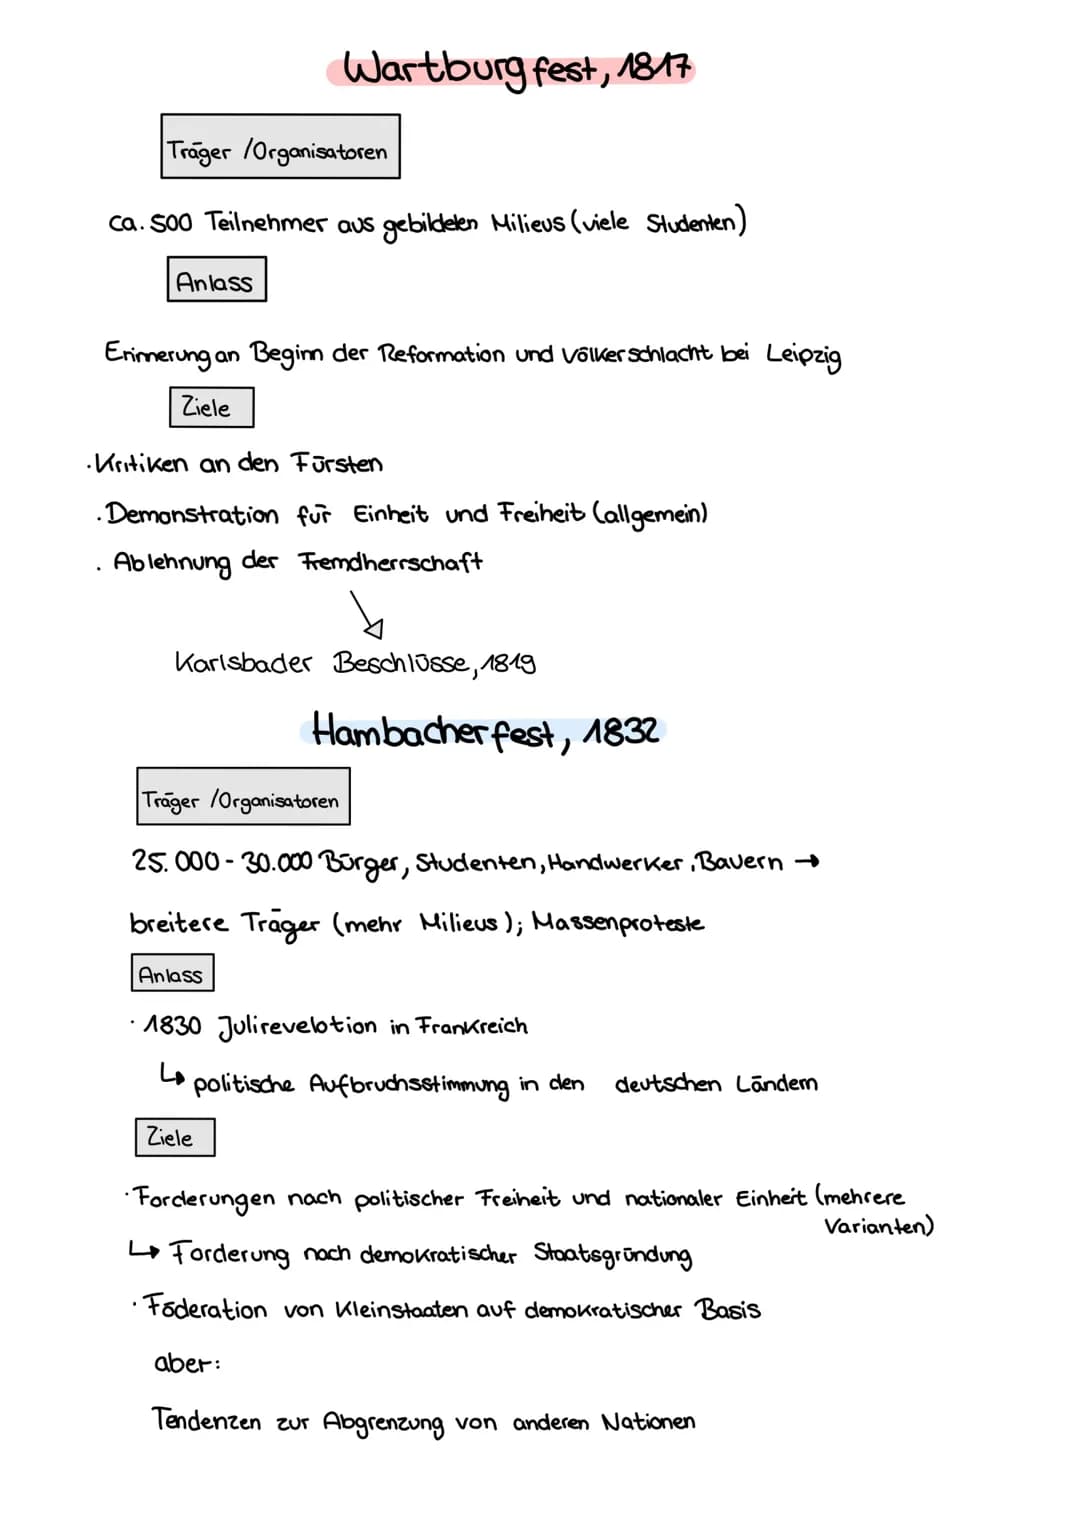 Wartburgfest, 1817
Träger /Organisatoren
ca. 500 Teilnehmer aus gebildeten Milieus (viele Studenten)
Anlass
Erinnerung an Beginn der Reformation und Völkerschlacht bei Leipzig
Ziele
·Kritiken an den Fürsten
·Demonstration für Einheit und Freiheit (allgemein)
· Ablehnung der Fremdherrschaft
Karlsbader Beschlüsse, 1819
Hambacherfest, 1832
Träger /Organisatoren
25.000 - 30.000 Bürger, Studenten, Handwerker, Bauern →
breitere Träger (mehr Milieus); Massenproteste
Anlass
· 1830 Julirevelotion in Frankreich
↳ politische Aufbruchsstimmung in den deutschen Ländern
Ziele
· Forderungen nach politischer Freiheit und nationaler Einheit (mehrere
Varianten)
↳ Forderung nach demokratischer Staatsgründung
· Föderation von Kleinstaaten auf demokratischer Basis
aber:
Tendenzen zur Abgrenzung von anderen Nationen